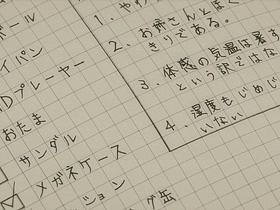 ボール
イパン
Dプレーヤー
おたま
サンダル
メガネケース
ション
グ缶
1. やわ
2. お姉さんとぼく
きりである。
3. 体感の気温は暑す
という訳ではな
4. 湿度もじめじ
いない